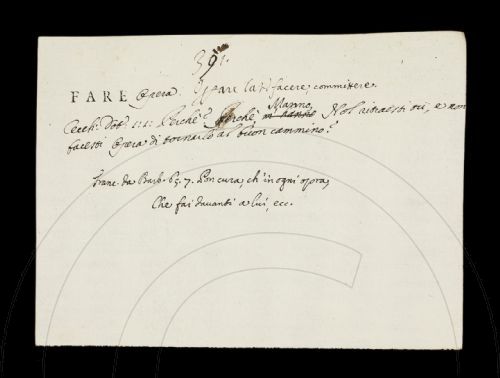 39.
FARE Opera. Operam dare, facere, committere.
Cecch. Dot. 1. 1. Perchè? Perchè Manno, Nol ritraesti tu, e non
facesti Opera di tornarlo al buon cammino?
Franc. da Barb. 63. 7. Pon cura, ch'in ogni opra,
Che fai davanti a lui, ecc.